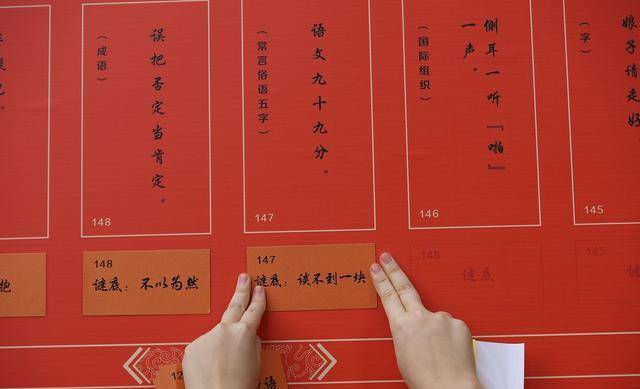 娘子请走好
（字）
145
侧耳一听『啪』
一声。
（国际组织）
146
语文九十九分。
（常言俗语五字）
147
误把否定当肯定。
（成语）
148
抱
148
谜底：不以为然
147
谜底：谈不到一块
146
谜底
145
12
语